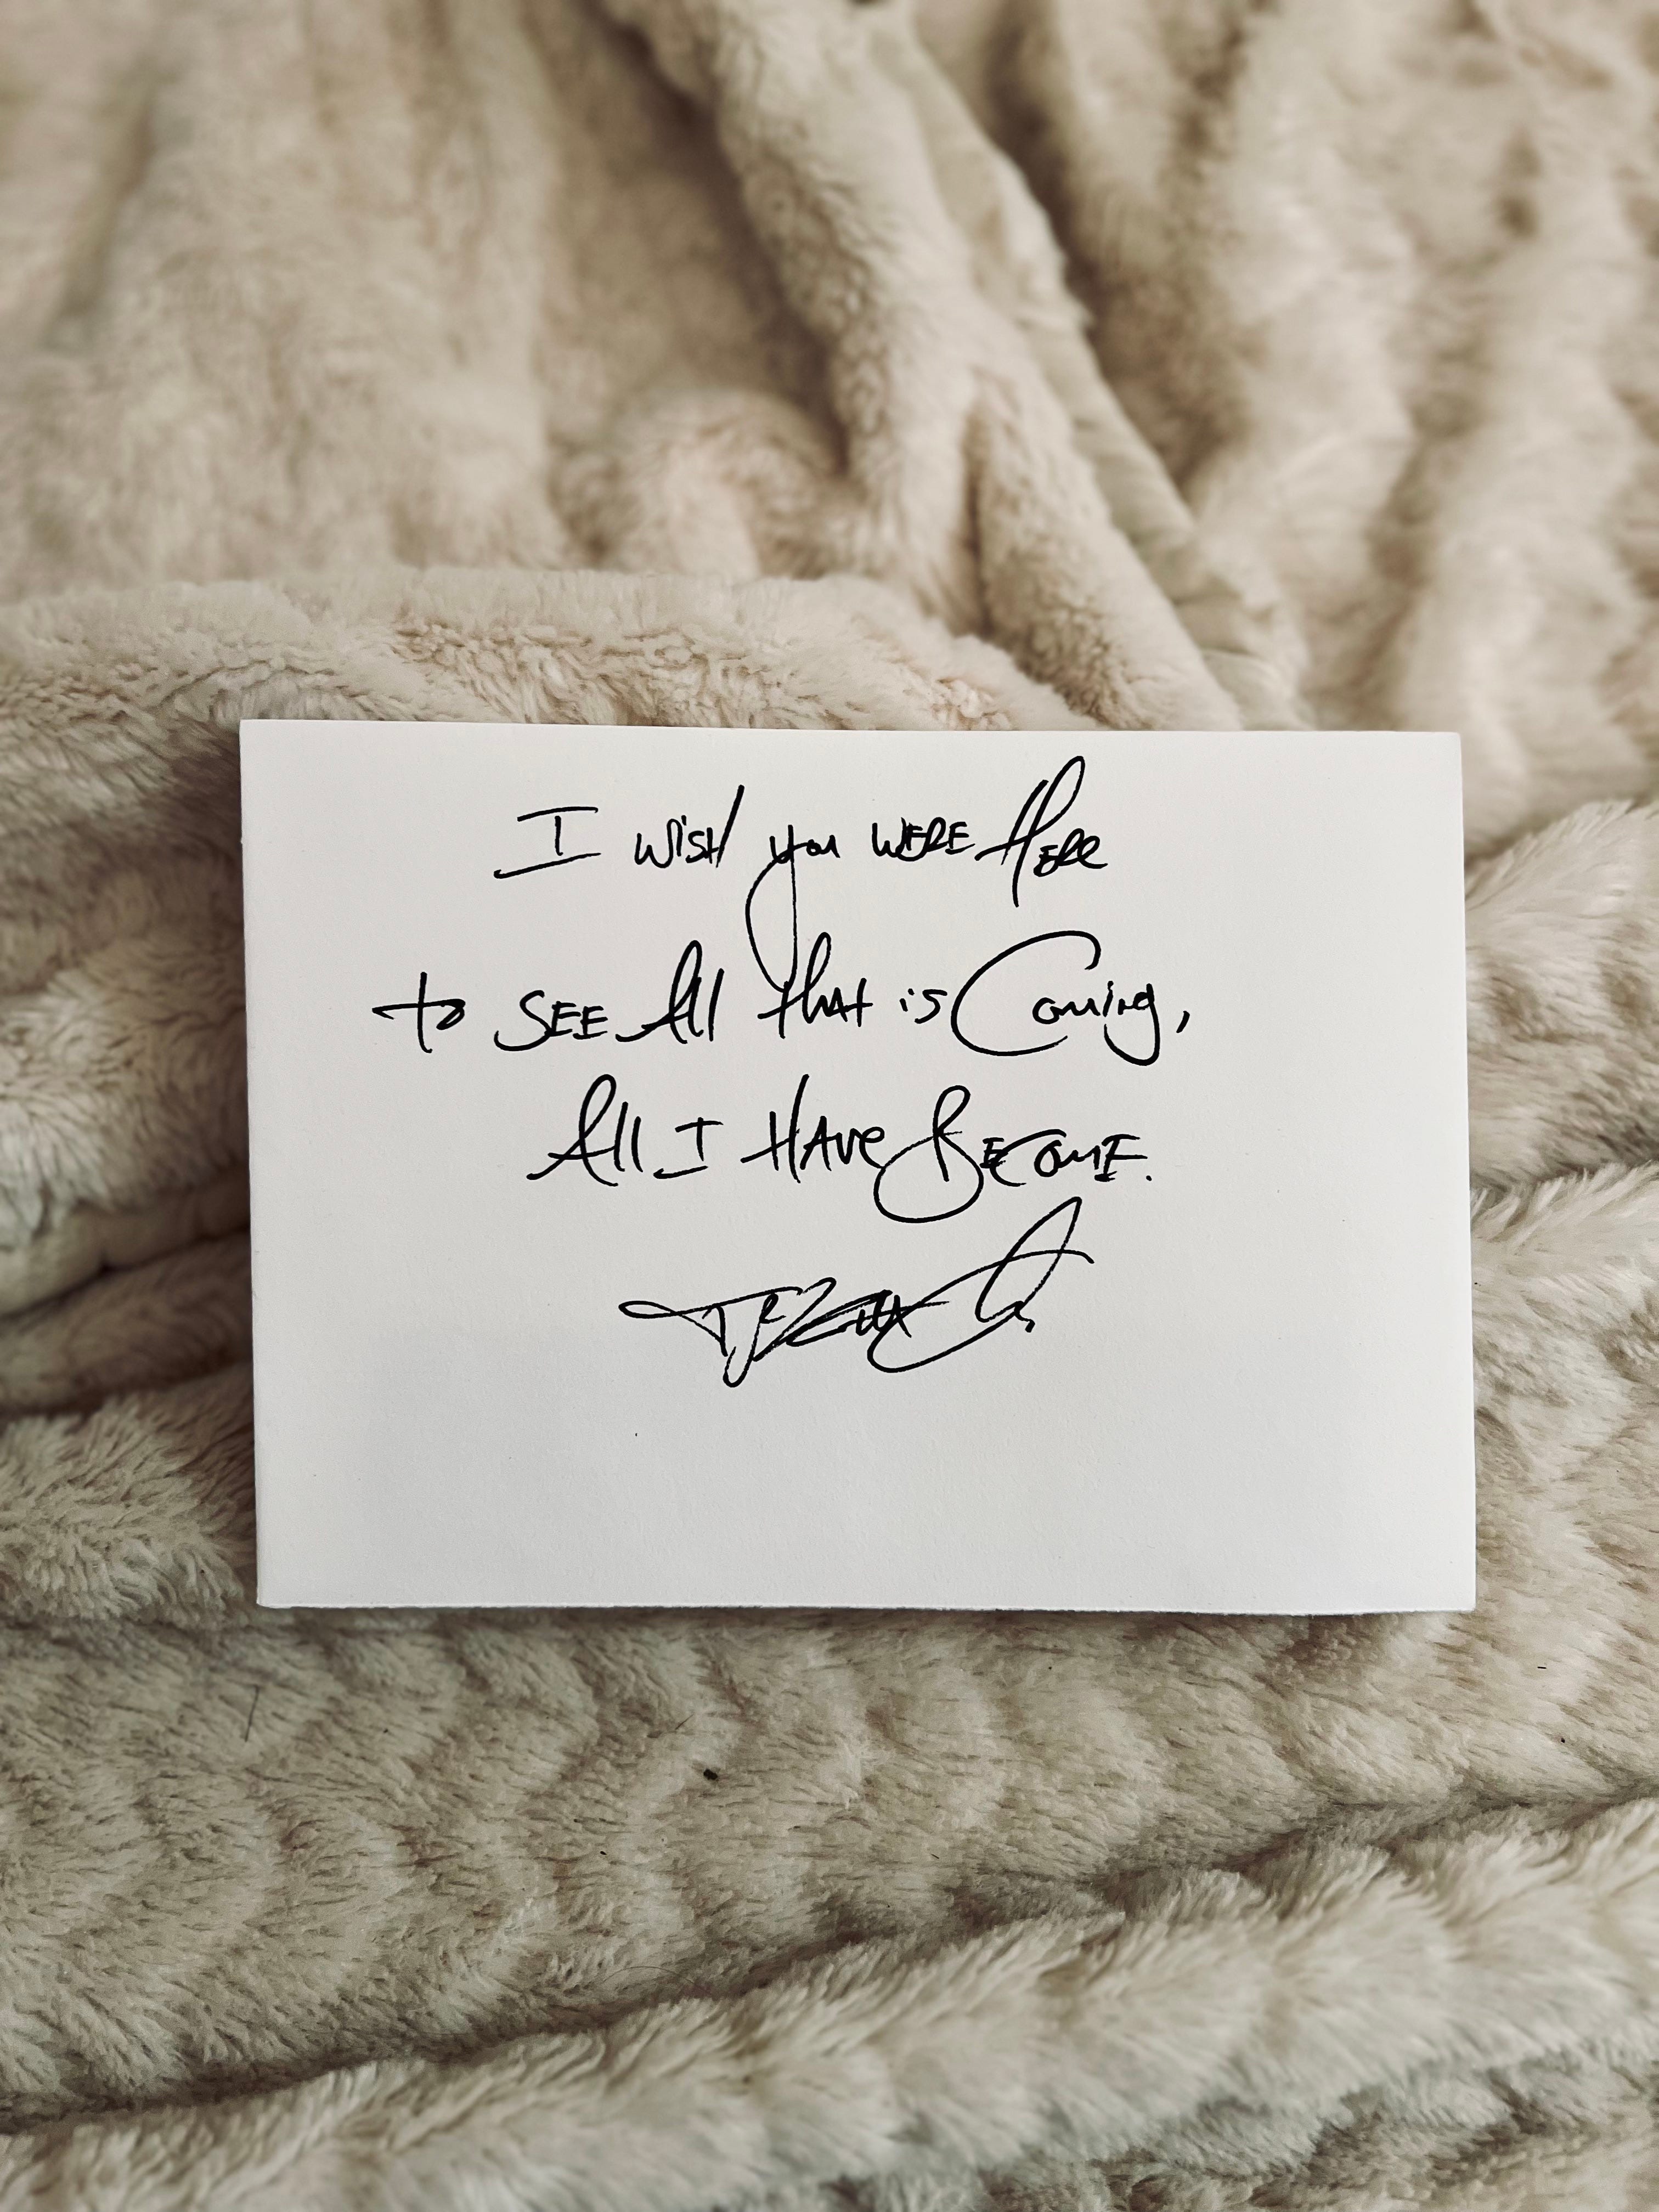 I wish you were Here
to see All that is Coming,
All I Have Become.